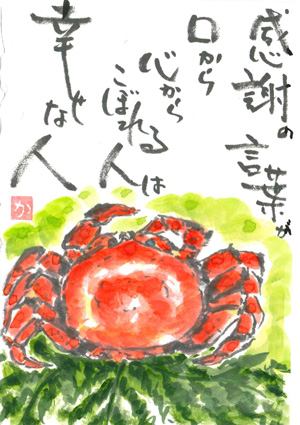 感謝の言葉が
口から
心から
こぼれる人は
幸せな人
か